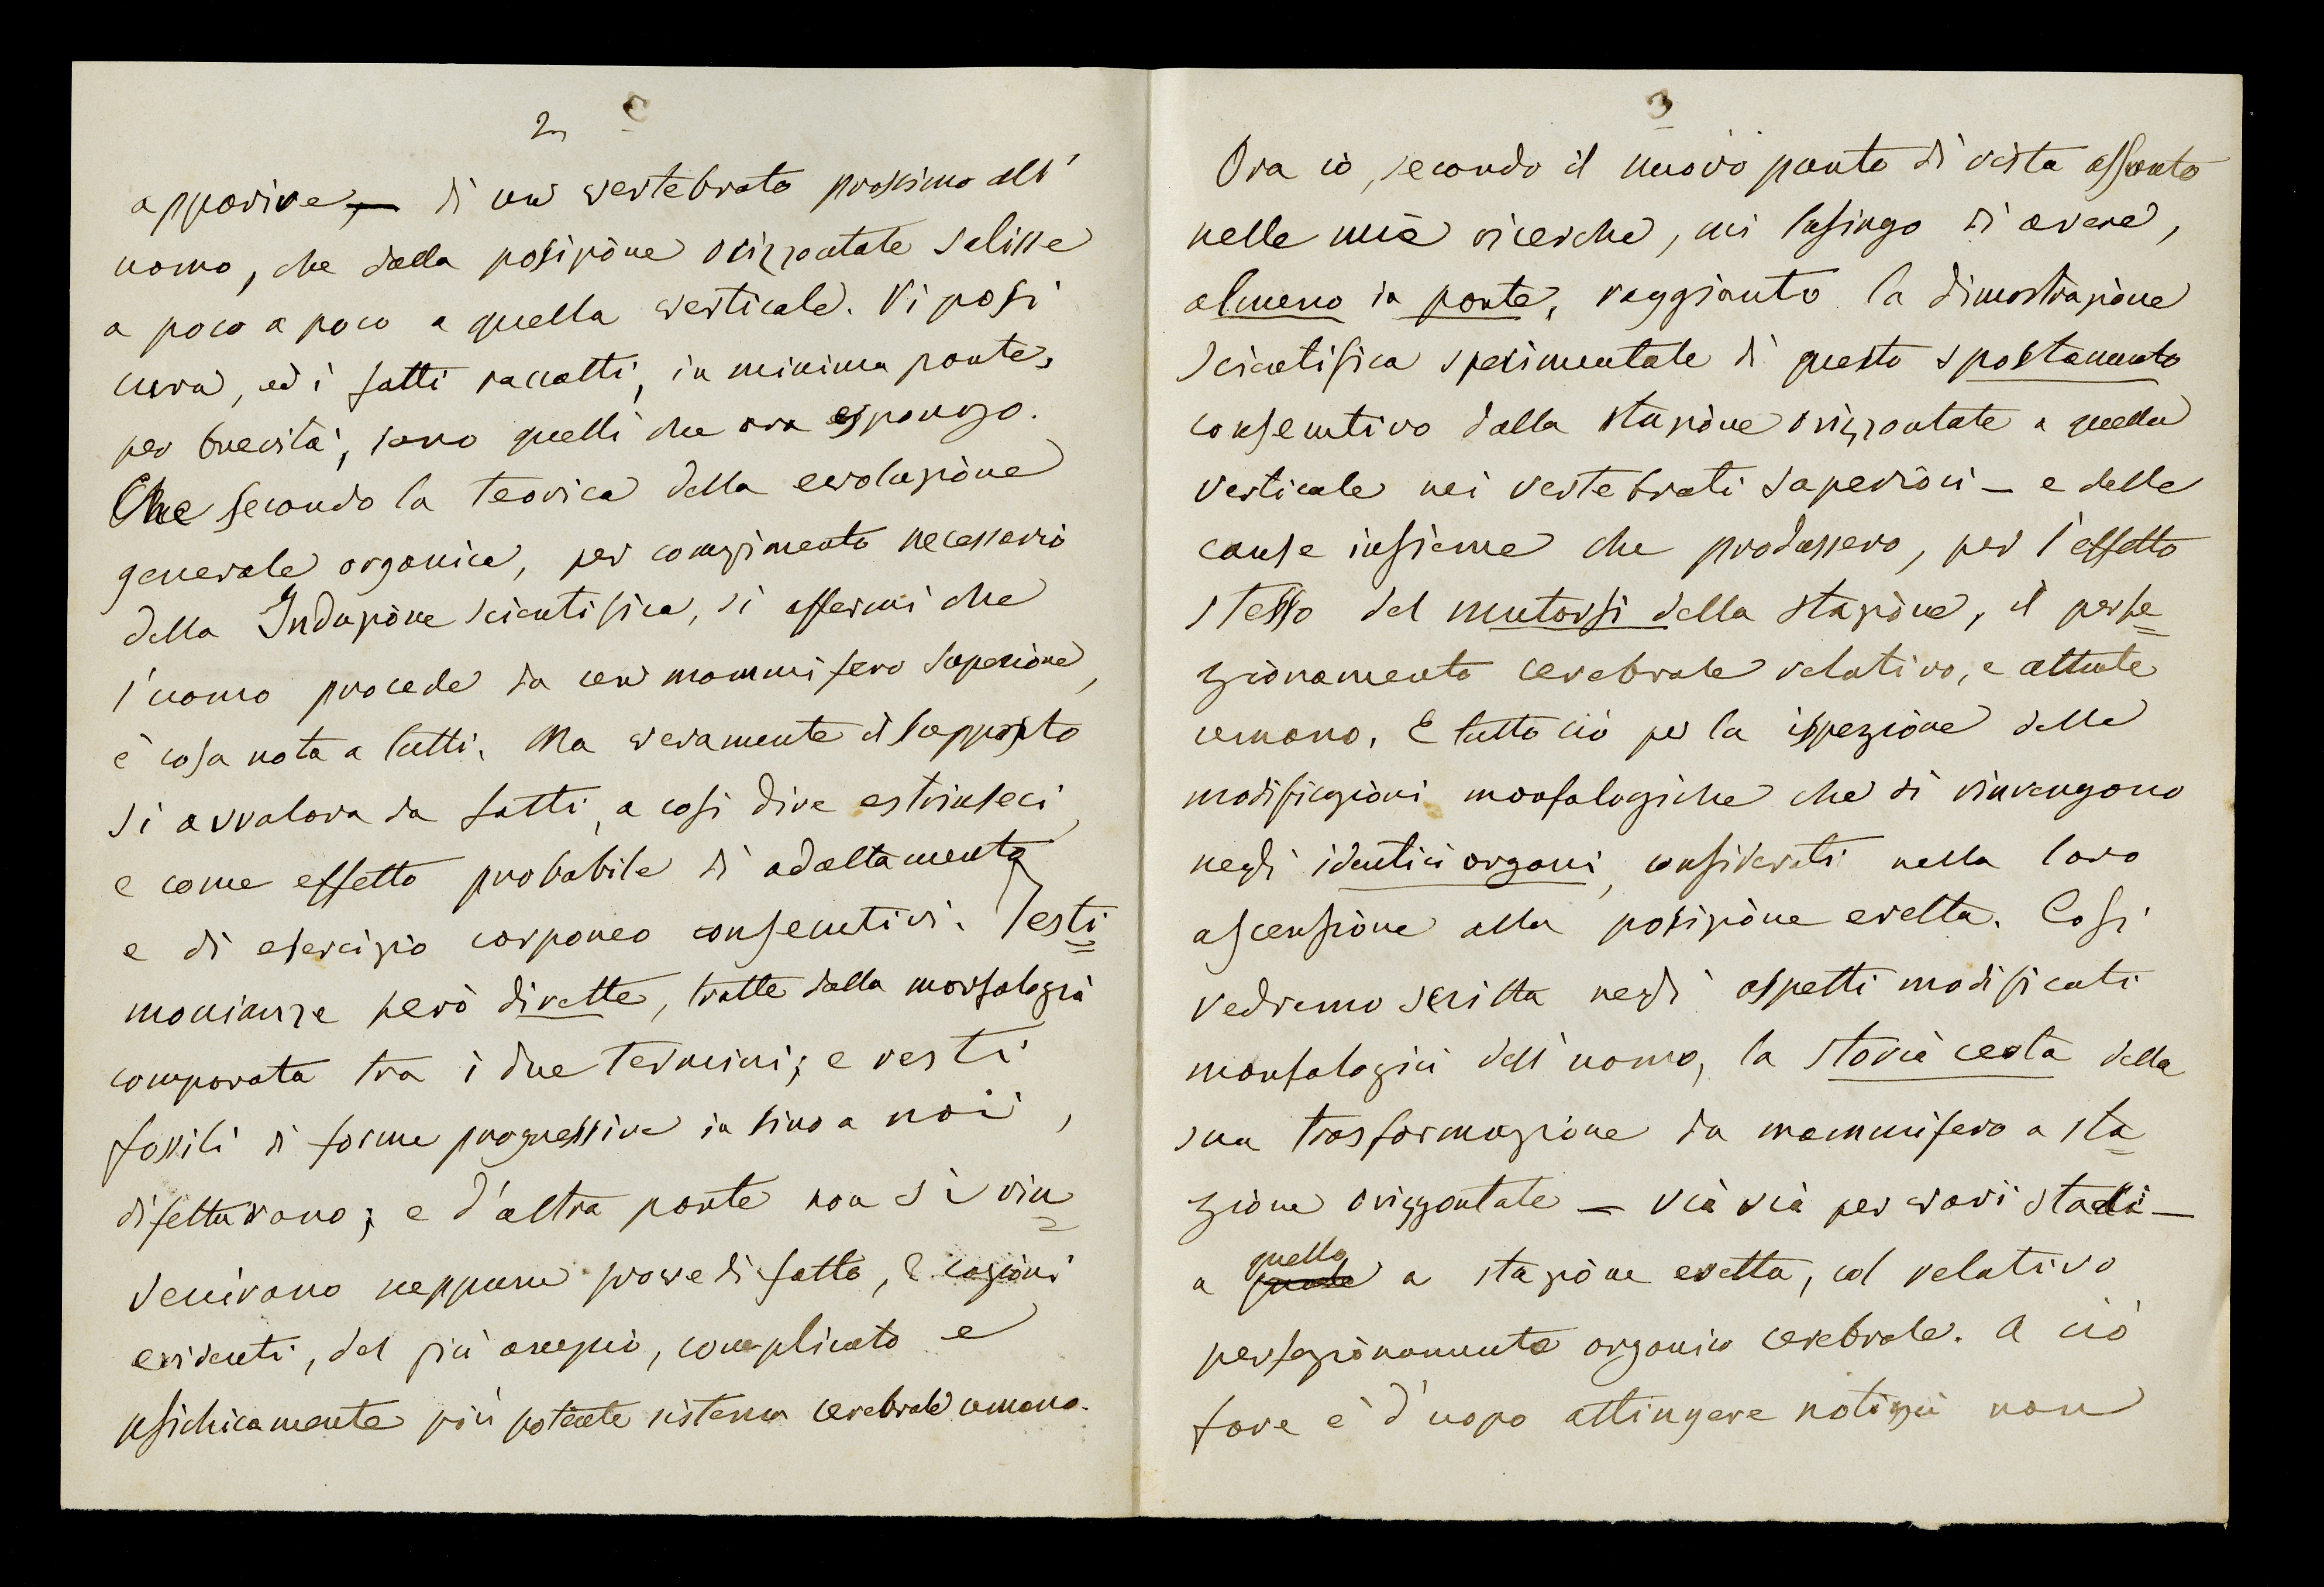 2
apparire, — di un vertebrato prossimo all'
uomo, che dalla posizione orizzontale salisse
a poco a poco a quella verticale. Vi posi
cura, ed i fatti raccolti, in minima parte,
per brevità, sono quelli che ora espongo.
Che secondo la teorica della evoluzione
generale organica, per compimento necessario
della Induzione scientifica, si affermi che
l'uomo procede da un mammifero superiore,
è cosa nota a tutti. Ma veramente il supposto
si avvalora da fatti, a così dire estrinseci,
e come effetto probabile di adattamento
e di esercizio corporeo consecutivi. Testi=
monianze però dirette, tratte dalla morfologia
comparata tra i due termini; e resti
fossili di forme progressive in sino a noi,
difettavano; e d'altra parte non si rin=
venivano neppure prove di fatto, e cagioni
evidenti, del più ampio, complicato e
psichicamente più potente sistema cerebrale umano.
3
Ora io, secondo il nuovo punto di vista assunto
nelle mie ricerche, mi lusingo di avere,
almeno in parte, raggiunto la dimostrazione
scientifica sperimentale di questo spostamento
consecutivo dalla stazione orizzontale a quella
verticale nei vertebrati superiori — e delle
cause insieme che produssero, per l'effetto
stesso del mutarsi della stazione, il perfe=
zionamento cerebrale relativo, e attuale
umano. E tutto ciò per la ispezione delle
modificazioni morfologiche che si rinvengono
negli identici organi, considerati nella loro
ascensione alla posizione eretta. Così
vedremo scritta negli aspetti modificati
morfologici dell'uomo, la storia certa della
sua trasformazione da mammifero a sta=
zione orizzontale — via via per varî stadi —
a quella a stazione eretta, col relativo
perfezionamento organico cerebrale. A ciò
fare è d'uopo attingere notizie non